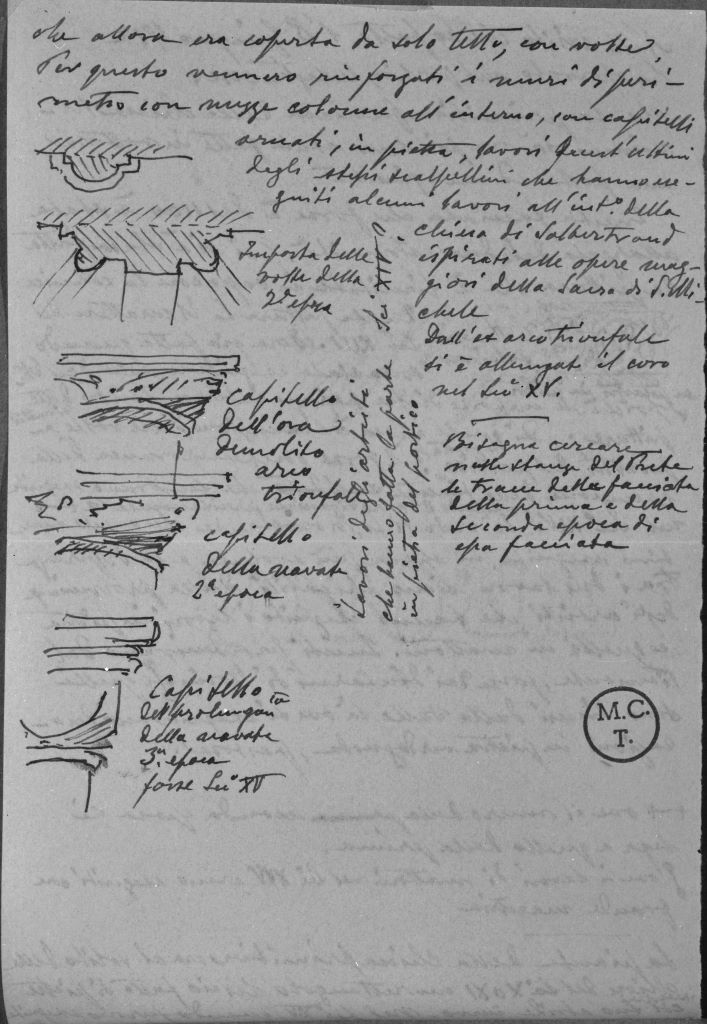 che allora era coperta da solo tetto, con volte.
Per questo vennero rinforzati i muri di peri-
metro con mezze colonne all'interno, con capitelli
ornati, in pietra, lavori quest'ultimi
degli stessi scalpellini che hanno ese-
guiti alcuni lavori all'int.o della
chiesa di Salbertrand
ispirati alle opere mag-
giori della Sacra di S. Mi-
chele
Dall'ex arco trionfale
si è allungat il coro
nel Sec.o XV.
Bisogna cercare
nelle stanze del Prete
le tracce della facciata
della prima e della
seconda epoca di
essa facciata
Imposta delle
volte della
2a epoca
capitello
dell'ora
demolito
arco
trionfale
capitello
della navata
2a epoca
Capitello
del prolungam
della navata
3a epoca
forse Sec.o XV
Lavori degli artisti
che hanno fatta la parte Sec XIV?
in pietra del portico
M.C.
T.